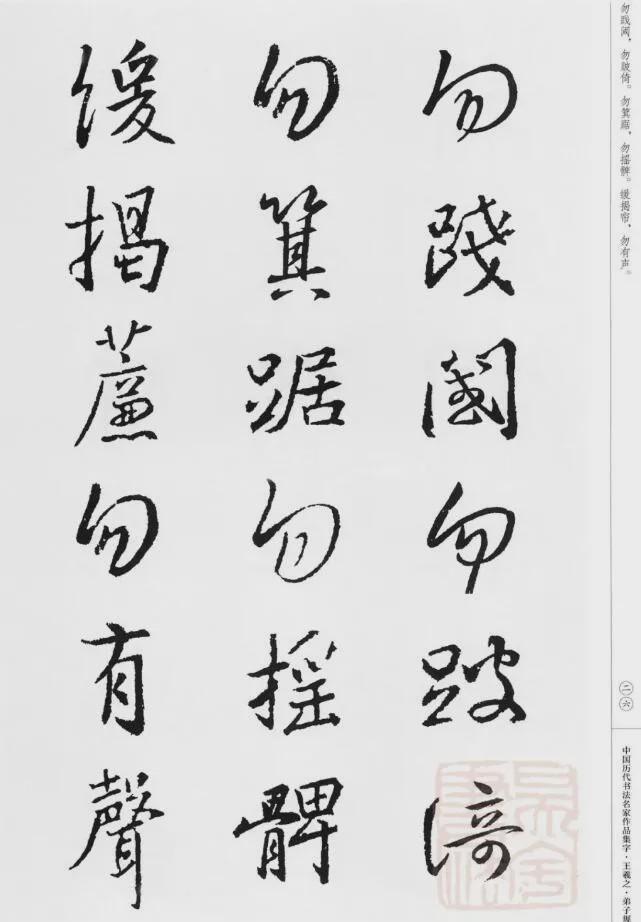 勿践阈，勿跛倚。勿箕踞，勿摇髀。缓揭帘，勿有声。
二六
中国历代书法名家作品集字·王羲之·弟子规
勿踐閾勿跛倚
勿箕踞勿摇髀
緩揭簾勿有聲